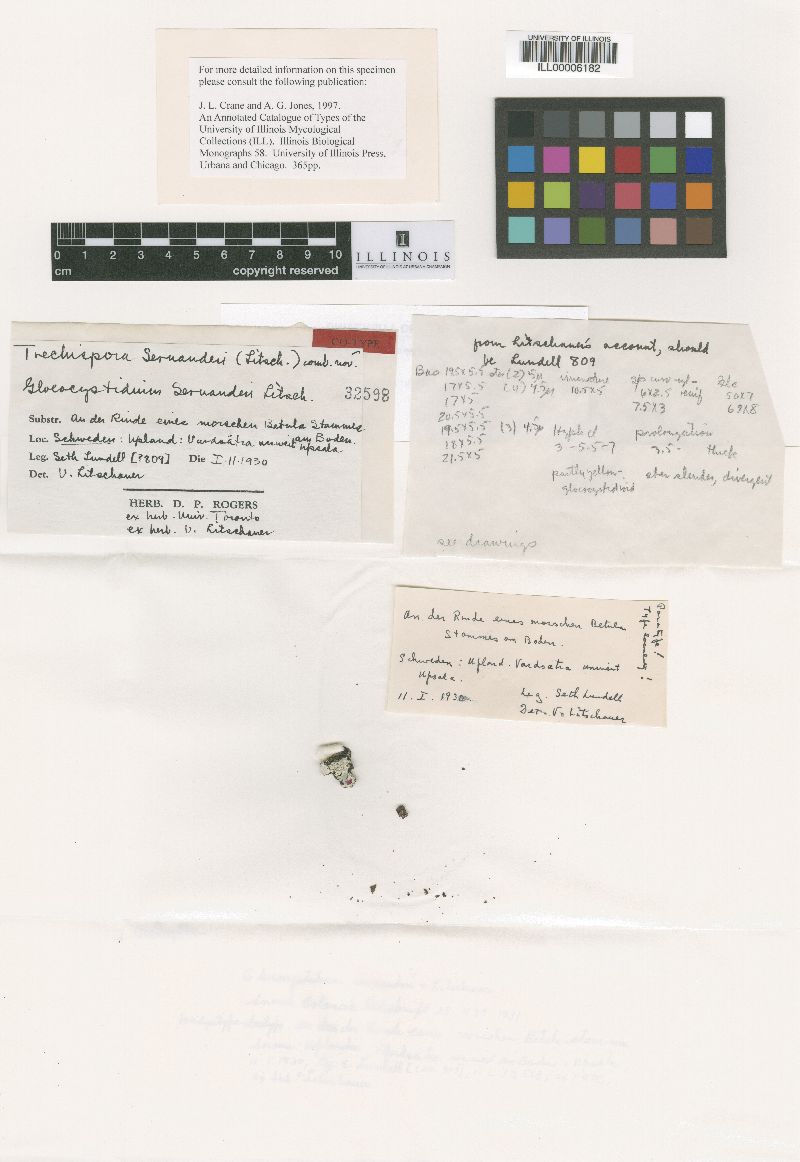 For more detailed information on this specimen
please consult the following publication:
J. L. Crane and A. G. Jones, 1997.
An Annotated Catalogue of Types of the
University of Illinois Mycological
Collections (ILL). Illinois Biological
Monographs 58. University of Illinois Press,
Urbana and Chicago. 365pp.
UNIVERSITY OF ILLINOIS
ILL00006182
0 1 2 3 4 5 6 7 8 9 10
cm copyright reserved
I
ILLINOIS
UNIVERSITY OF ILLINOIS AT URBANA-CHAMPAIGN
CO-TYPE
Trechispora Sernanderi (Litsch.) comb. nov.
Gloeocystidium Sernanderi Litsch. 32598
Substr. An der Rinde eines morschen Betula Stammes
am Boden.
Loc. Schweden: Upland: Vardsätra unweit Upsala.
Leg. Seth Lundell [?809] Die I-11-1930
Det. V. Litschauer
HERB. D. P. ROGERS
ex herb. Univ. Toronto
ex herb. V. Litschauer
from Litschauer's account, should
be Lundell 809
17x5.5
17x5
20.5x5.5
19.5x5.5
18x5.5
21.5x5
10.5x5
6x2.5
7.5x3
50x7
prolongation
3-5.5-7
3.5-
thick
partly yellow-
gloeocystidioid
slender, divergent
see drawings
An der Rinde eines morschen Betula
Stammes am Boden.
Schweden: Upland. Vardsätra unweit
Upsala.
11. I. 1930
Leg. Seth Lundell
Det. V. Litschauer